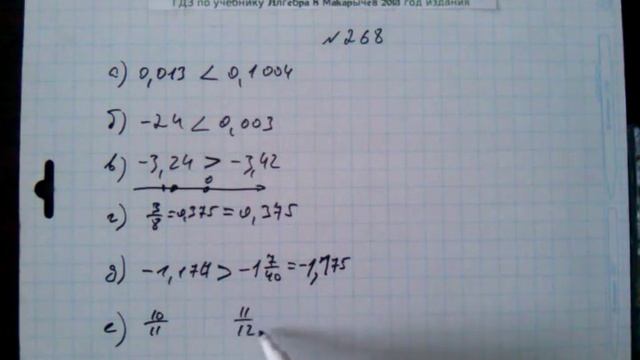 ГДЗ по учебнику Алгебра 8 Макарычев 2013 год издания
№268
а) 0,013 < 0,1004
б) -24 < 0,003
в) -3,24 > -3,42
0
г) 3/8 = 0,375 = 0,375
д) -1,174 > -1 7/40 = -1,175
е) 10/11 11/12